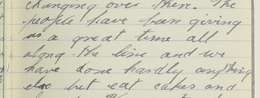 changing over there. The
people have been giving
us a great time all
along the line and we
have done hardly anything
else but eat cakes and